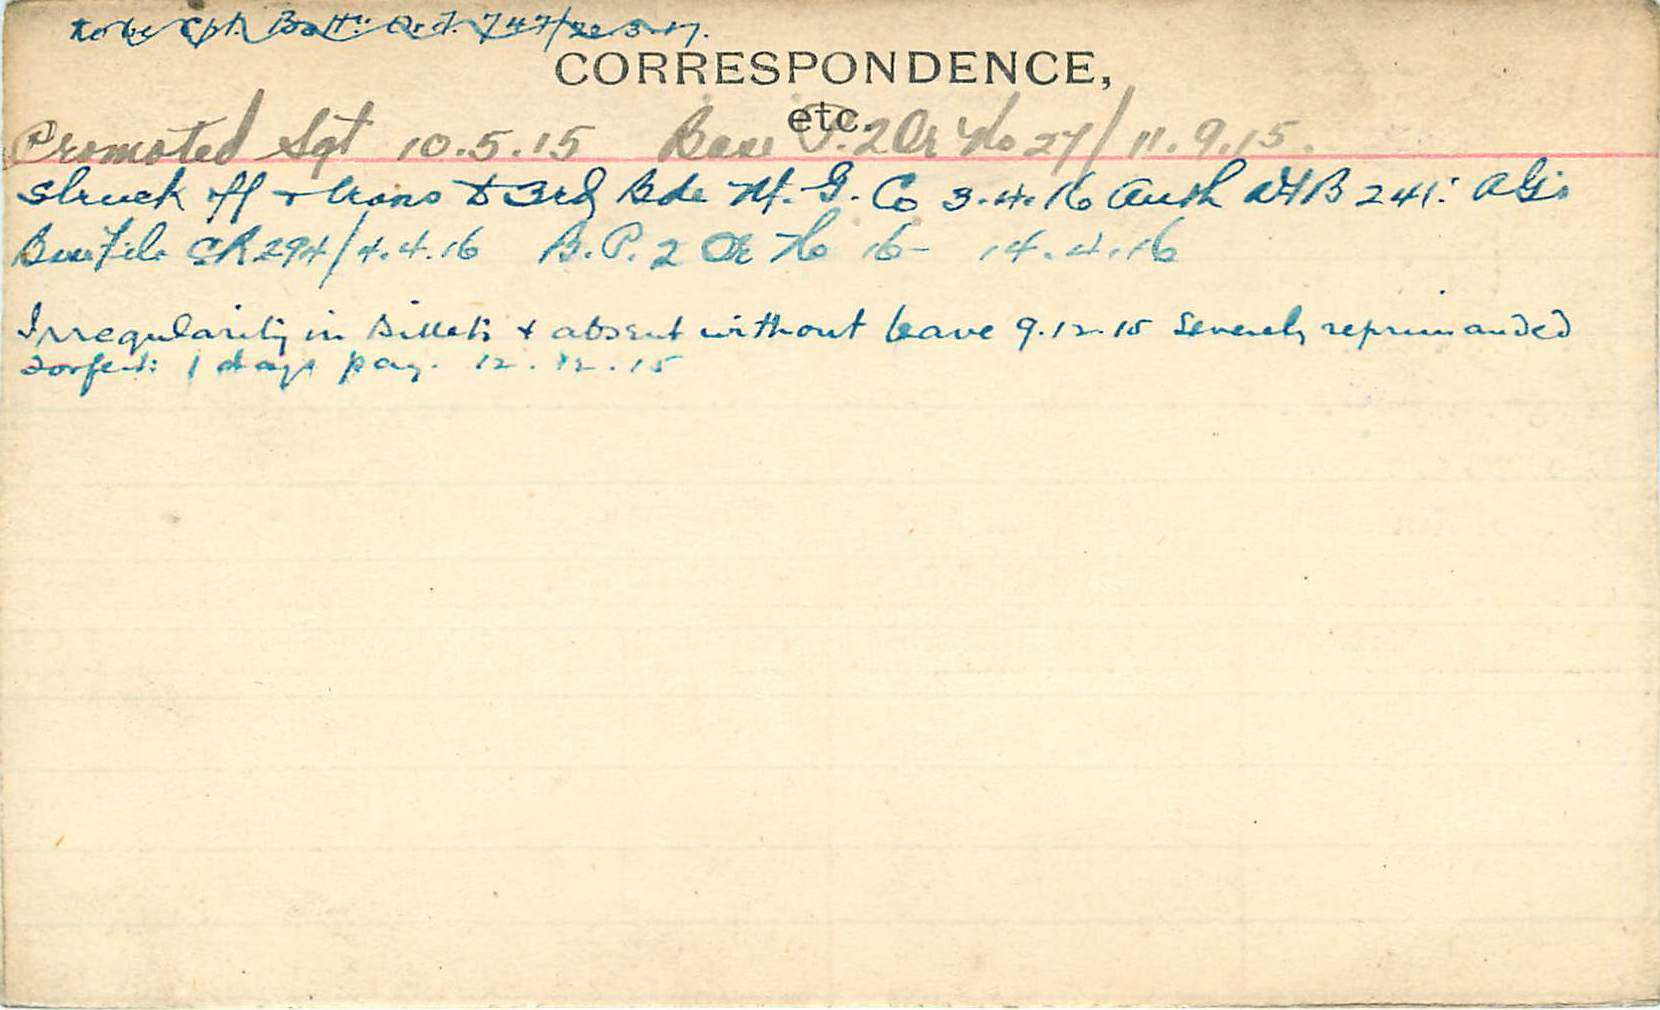 to be Cpl. Battn. Or. 747/20.3.17.
CORRESPONDENCE,
etc.
Promoted Sgt 10.5.15 Base P. 2 Or No 27/11.9.15.
Struck off + trans to 3rd Bde M. G. Co 3.4.16 Auth 241: AGs
Base File CR294/4.4.16 B. P. 2 Or No 16 - 14.4.16
Irregularity in Billets + absent without leave 9.12.15 Severely reprimanded
forfeits 1 days pay. 12.12.15